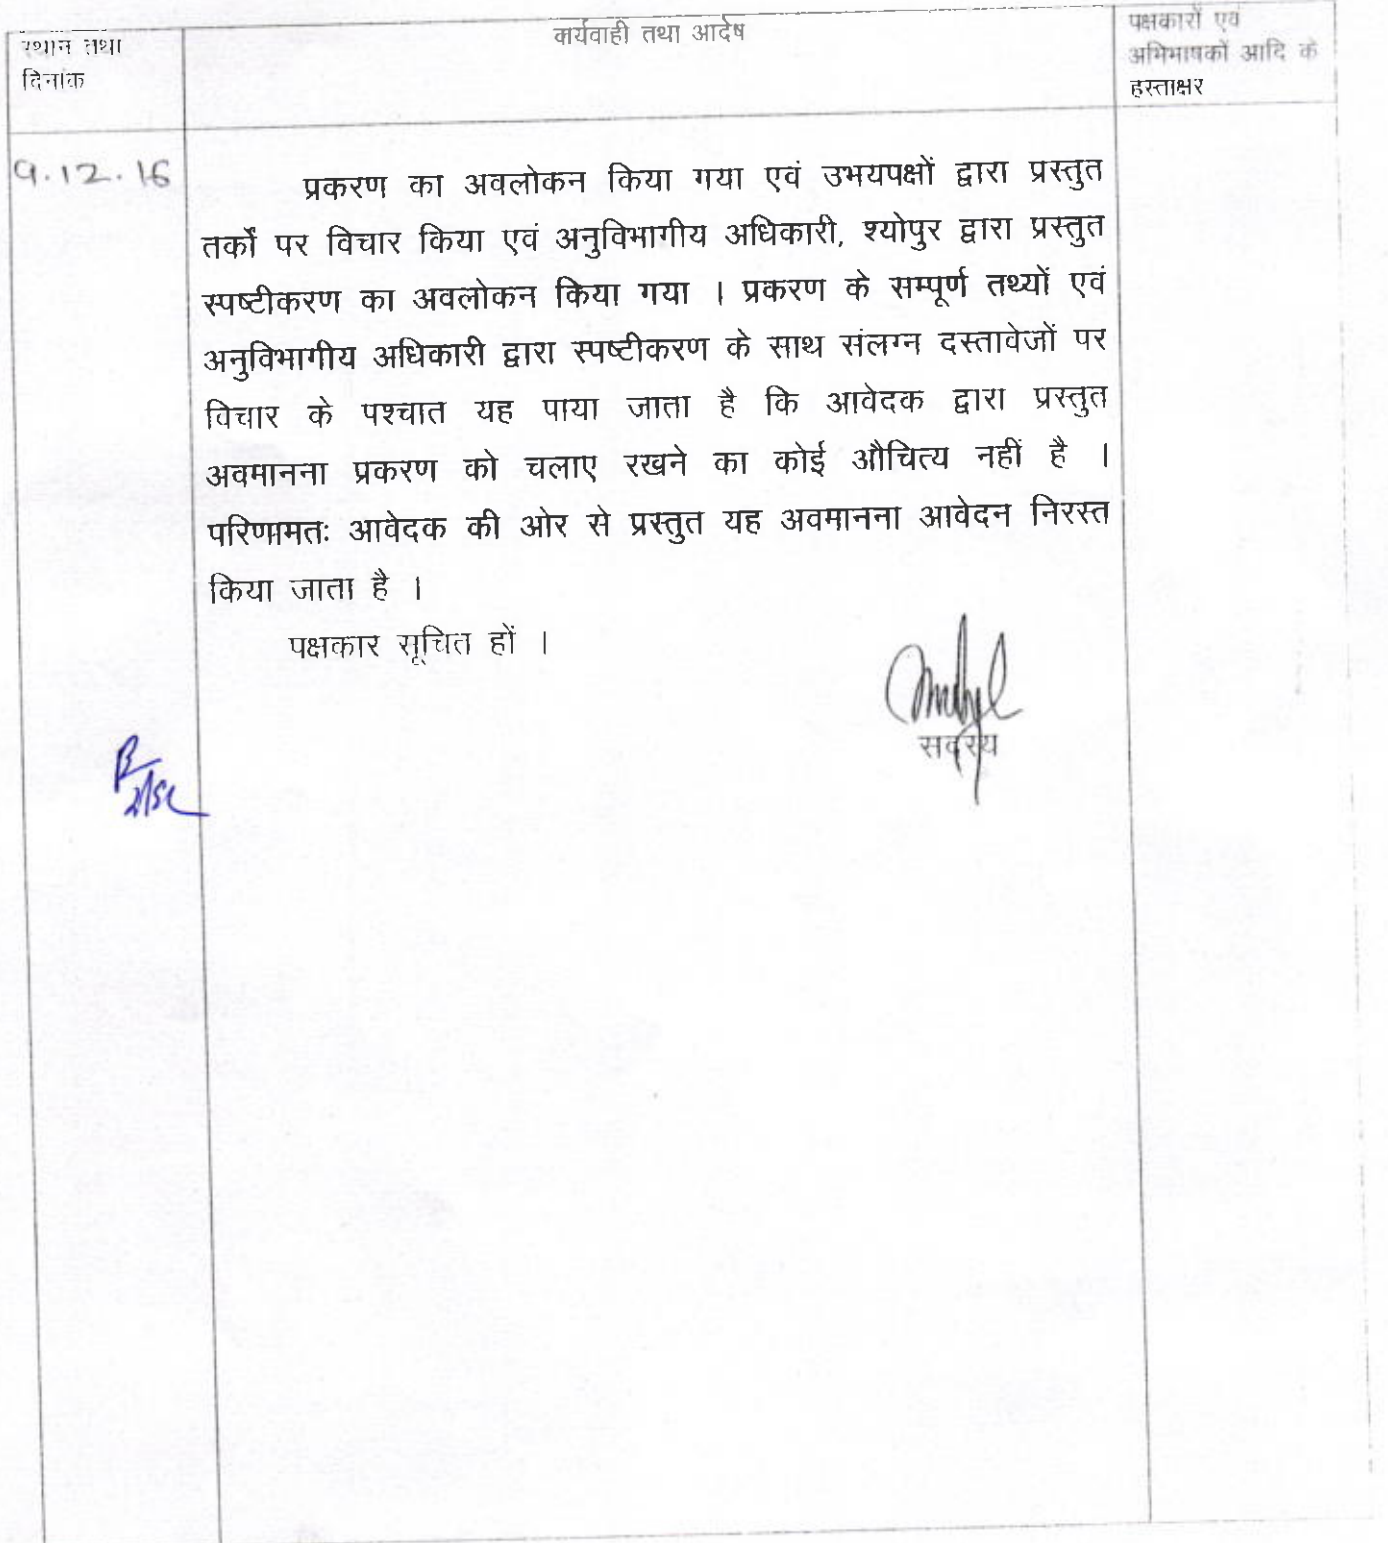 स्थान तथा
दिनांक
कार्यवाही तथा आदेष
पक्षकारों एवं
अभिभाषकों आदि के
हस्ताक्षर
9.12.16
प्रकरण का अवलोकन किया गया एवं उभयपक्षों द्वारा प्रस्तुत
तर्कों पर विचार किया एवं अनुविभागीय अधिकारी, श्योपुर द्वारा प्रस्तुत
स्पष्टीकरण का अवलोकन किया गया । प्रकरण के सम्पूर्ण तथ्यों एवं
अनुविभागीय अधिकारी द्वारा स्पष्टीकरण के साथ संलग्न दस्तावेजों पर
विचार के पश्चात यह पाया जाता है कि आवेदक द्वारा प्रस्तुत
अवमानना प्रकरण को चलाए रखने का कोई औचित्य नहीं है ।
परिणामतः आवेदक की ओर से प्रस्तुत यह अवमानना आवेदन निरस्त
किया जाता है ।
पक्षकार सूचित हों ।
सदस्य